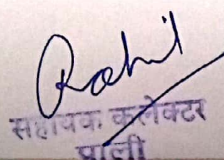 Rohit
सहायक कलेक्टर
पाली